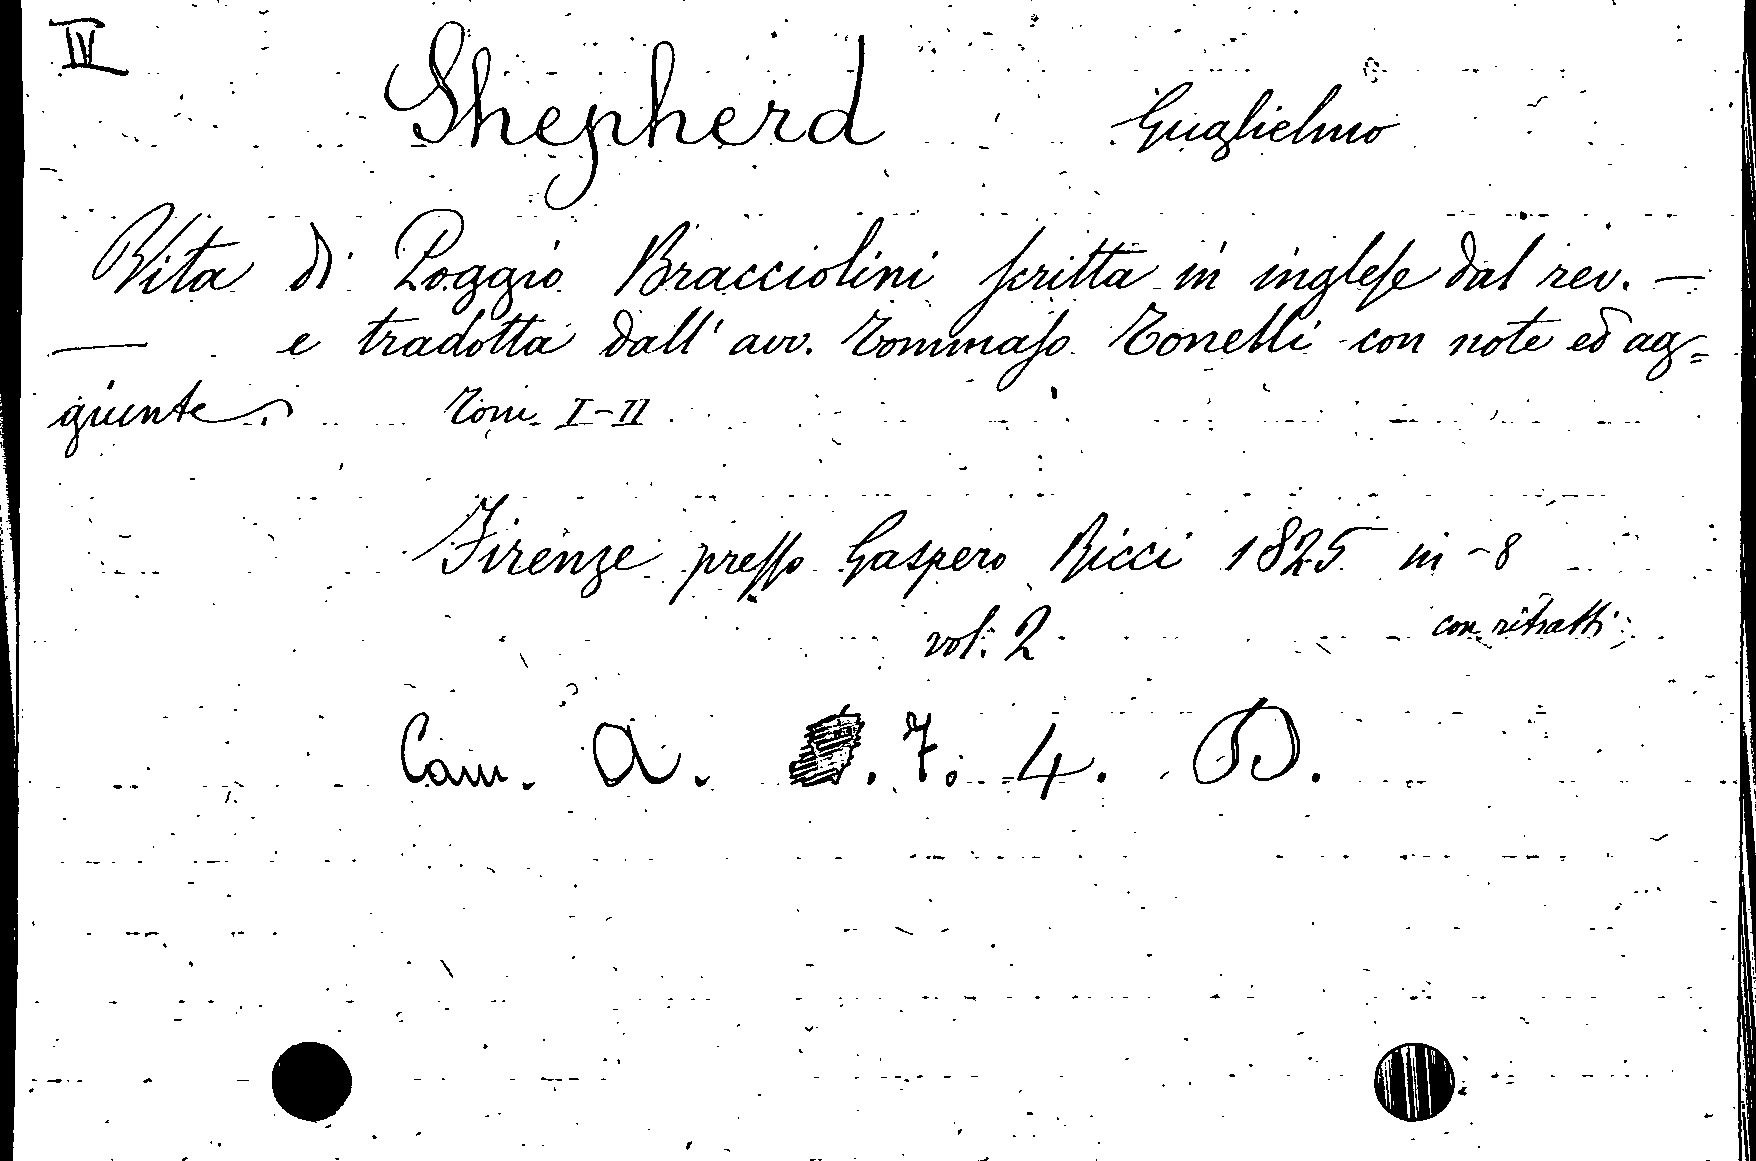 IV
Shepherd Guglielmo
Vita di Poggio Bracciolini scritta in inglese dal rev. —
— e tradotta dall' avv. Tommaso Tonelli con note ed ag=
giunte. Tom. I-II
Firenze presso Gaspero Ricci 1825 in-8
vol. 2 con ritratti
Cam. A. . 7. 4. D.